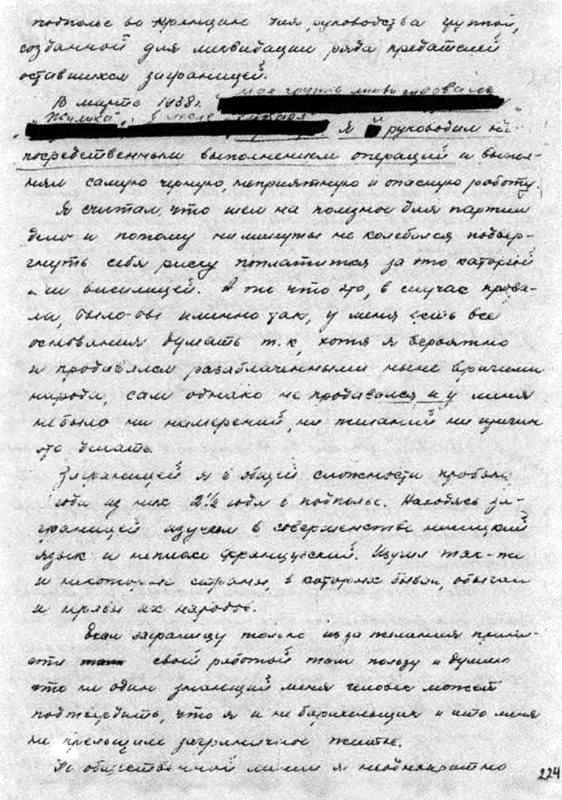 подполье во Францию для руководства группой,
созданной для ликвидации ряда предателей
оставшихся заграницей.
В марте 1938 г. моя группа ликвидовала
"Жулика", в июле
Я руководил не-
посредственным выполнением операций и выпол-
нял самую черную, неприятную и опасную работу.
Я считал, что шел на полезное для партии
дело и потому ни минуты не колебался подвер-
гнуть себя риску поплатится за это каторгой
или висилицей. А то что это, в случае прова-
ла, было-бы именно так, у меня есть все
основания думать т.к., хотя я вероятно
и продавался разоблаченными ныне врагами
народа, сам однако не продавался и у меня
не было ни намерений, ни желаний ни причин
это делать.
Заграницей я в общей сложности пробыл
года из них 2½ года в подполье. Находясь за-
границей изучил в совершенстве немецкий
язык и неплохо французский. Изучил так-же
и некоторые страны, в которых бывал, обычаи
и нравы их народов.
Ехал заграницу только из за желания прине-
сти своей работой там пользу и думаю
что не один знающий меня человек может
подтвердить, что я и не барахольщик и что меня
не прельщало заграничное житье.
По общественной линии я неоднократно
224